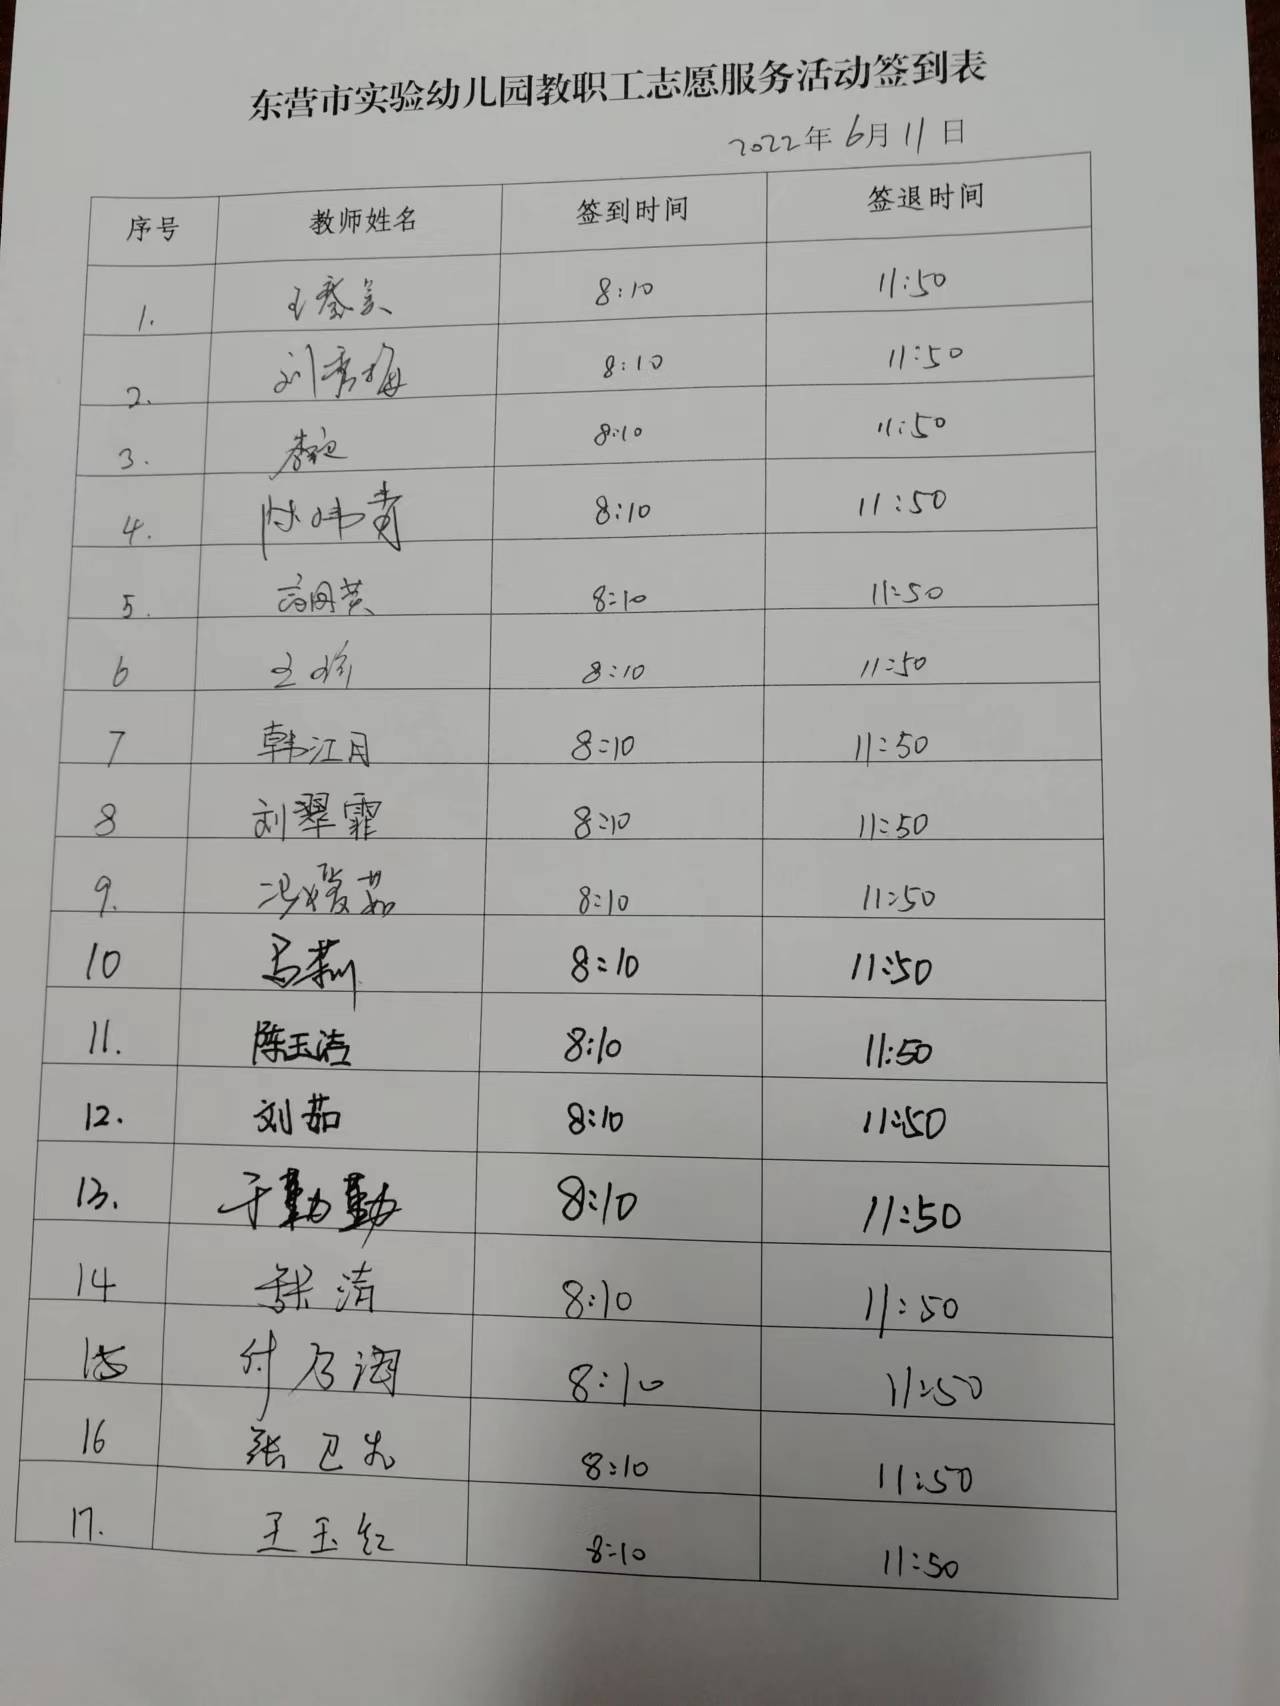 东营市实验幼儿园教职工志愿服务活动签到表
2022年6月11日
序号 教师姓名 签到时间 签退时间
1. 8:10 11:50
2. 刘秀梅 8:10 11:50
3. 8:10 11:50
4. 8:10 11:50
5. 8:10 11:50
6 8:10 11:50
7 韩江月 8:10 11:50
8 刘翠霏 8:10 11:50
9. 冯媛茹 8:10 11:50
10 8:10 11:50
11. 陈玉洁 8:10 11:50
12. 刘茹 8:10 11:50
13. 于勤勤 8:10 11:50
14 张洁 8:10 11:50
15 8:10 11:50
16 8:10 11:50
17. 王玉红 8:10 11:50